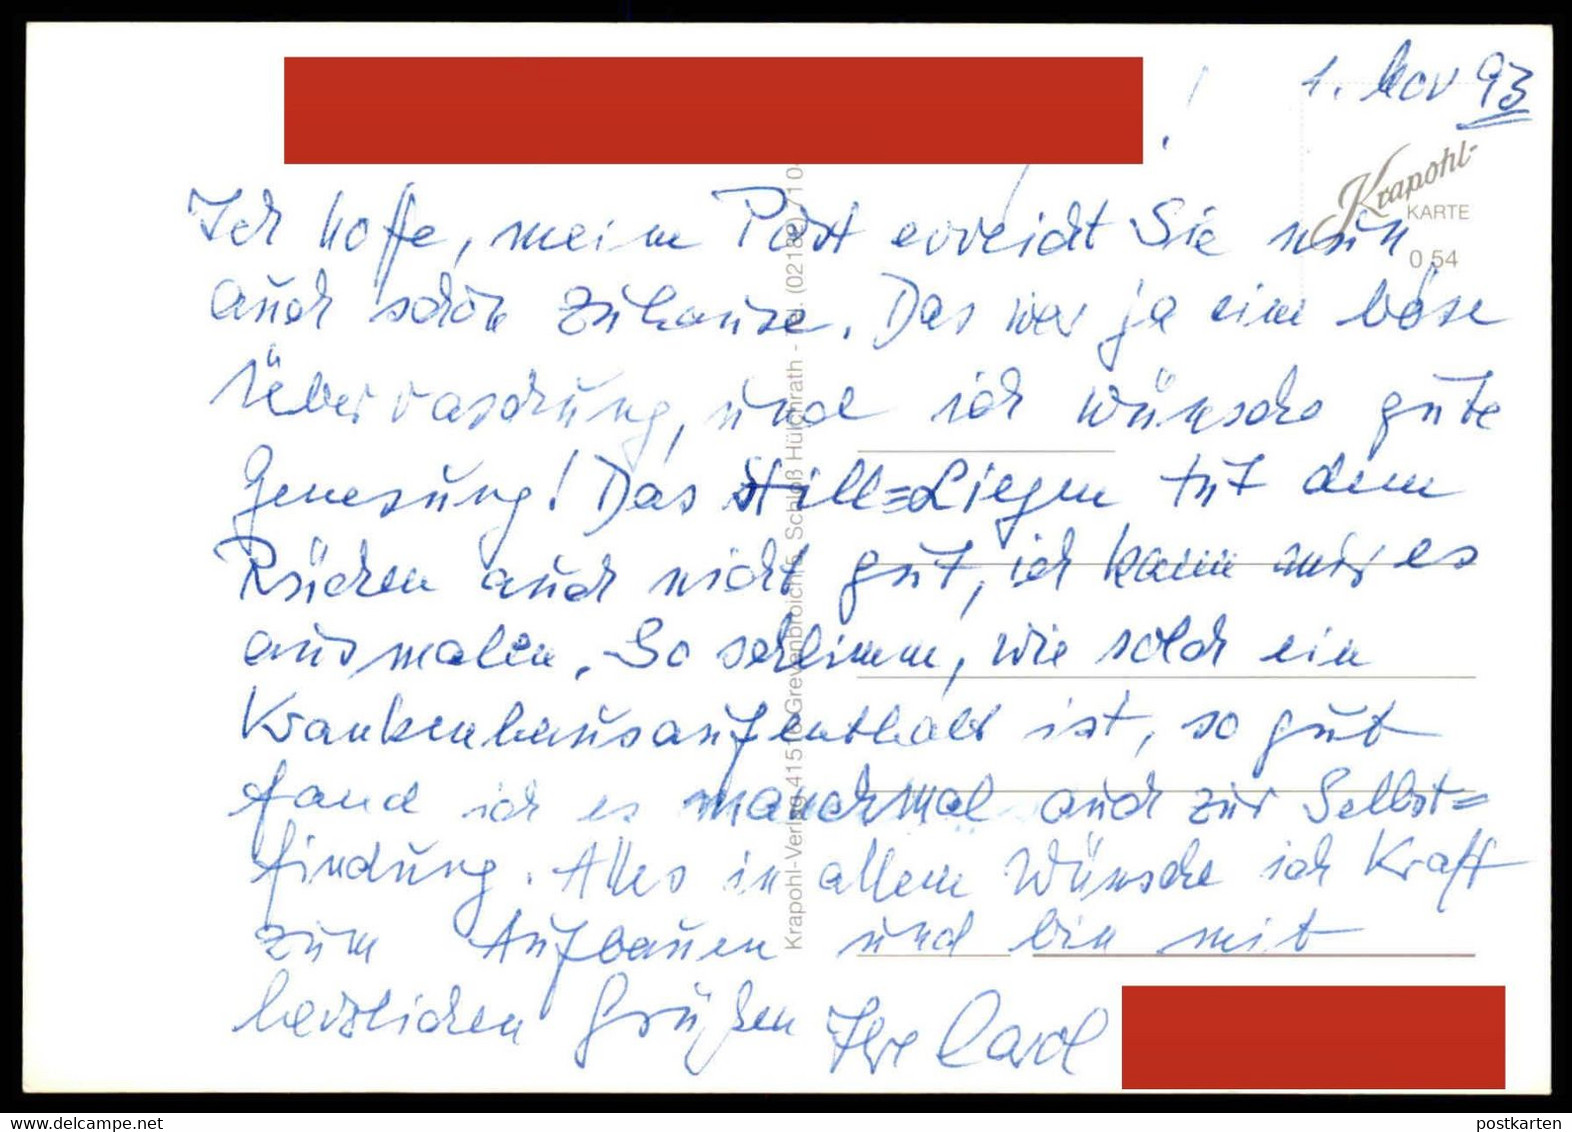 1. Nov 93
!
Krapohl-
KARTE
0 54
Ich hoffe, meine Post erreicht Sie nun
auch schon zuhause. Das war ja eine böse
Überraschung, und ich wünsche gute
Genesung! Das Still=Liegen tut dem
Rücken auch nicht gut, ich kann mir es
ausmalen. So schlimm, wie solch ein
Krankenhausaufenthalt ist, so gut
fand ich es manchmal auch zur Selbst=
findung. Alles in allem Wünsche ich Kraft
zum Aufbauen und bin mit
herzlichen Grüßen Ihre Carol
Krapohl-Verlag 41516 Grevenbroich 5, Schloß Hülchrath - Tel.
postkarten